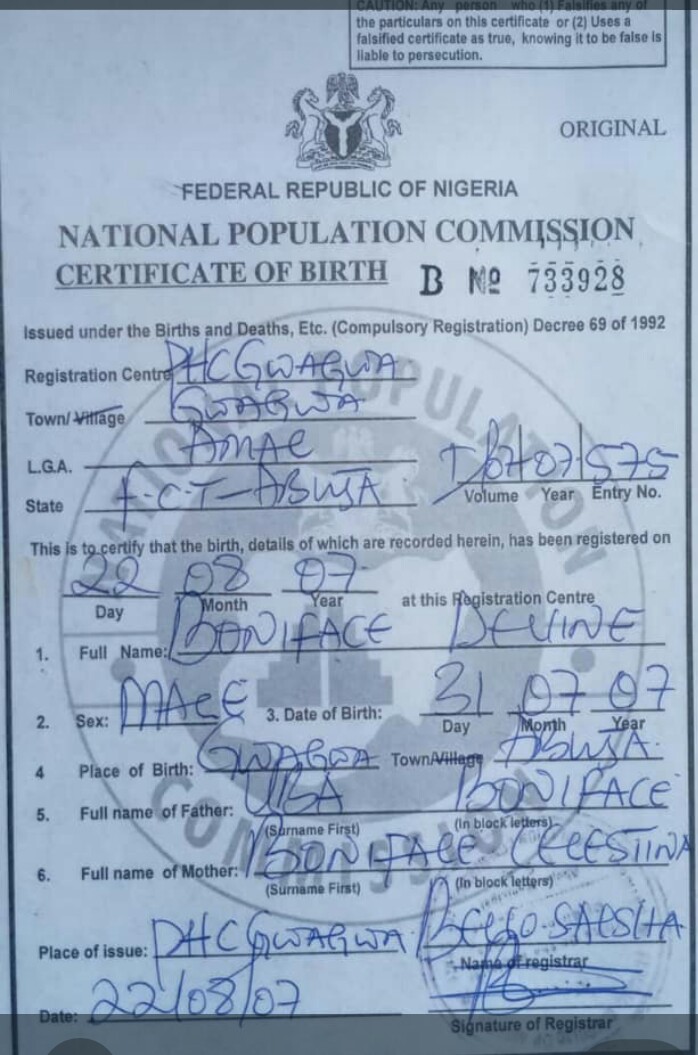 CAUTION: Any person who (1) Falsifies any of
the particulars on this certificate or (2) Uses a
falsified certificate as true, knowing it to be false is
liable to persecution.
ORIGINAL
FEDERAL REPUBLIC OF NIGERIA
NATIONAL POPULATION COMMISSION
CERTIFICATE OF BIRTH B No 733928
Issued under the Births and Deaths, Etc. (Compulsory Registration) Decree 69 of 1992
Registration Centre PHC GWAGWA
Town/Village GWAGWA
L.G.A. AMAC
State F.C.T-ABUJA 07 07 575
Volume Year Entry No.
This is to certify that the birth, details of which are recorded herein, has been registered on
22 08 07 at this Registration Centre
Day Month Year
1. Full Name: BONIFACE DEVINE
2. Sex: MALE 3. Date of Birth: 31 07 07
Day Month Year
4 Place of Birth: GWAGWA Town/Village ABUJA.
5. Full name of Father: UBA BONIFACE
(Surname First) (In block letters)
6. Full name of Mother: BONIFACE CELESTINA
(Surname First) (In block letters)
Place of issue: PHC GWAGWA BELLO
Name of registrar
Date: 22/08/07
Signature of Registrar
NATIONAL POPULATION
COMMISSION